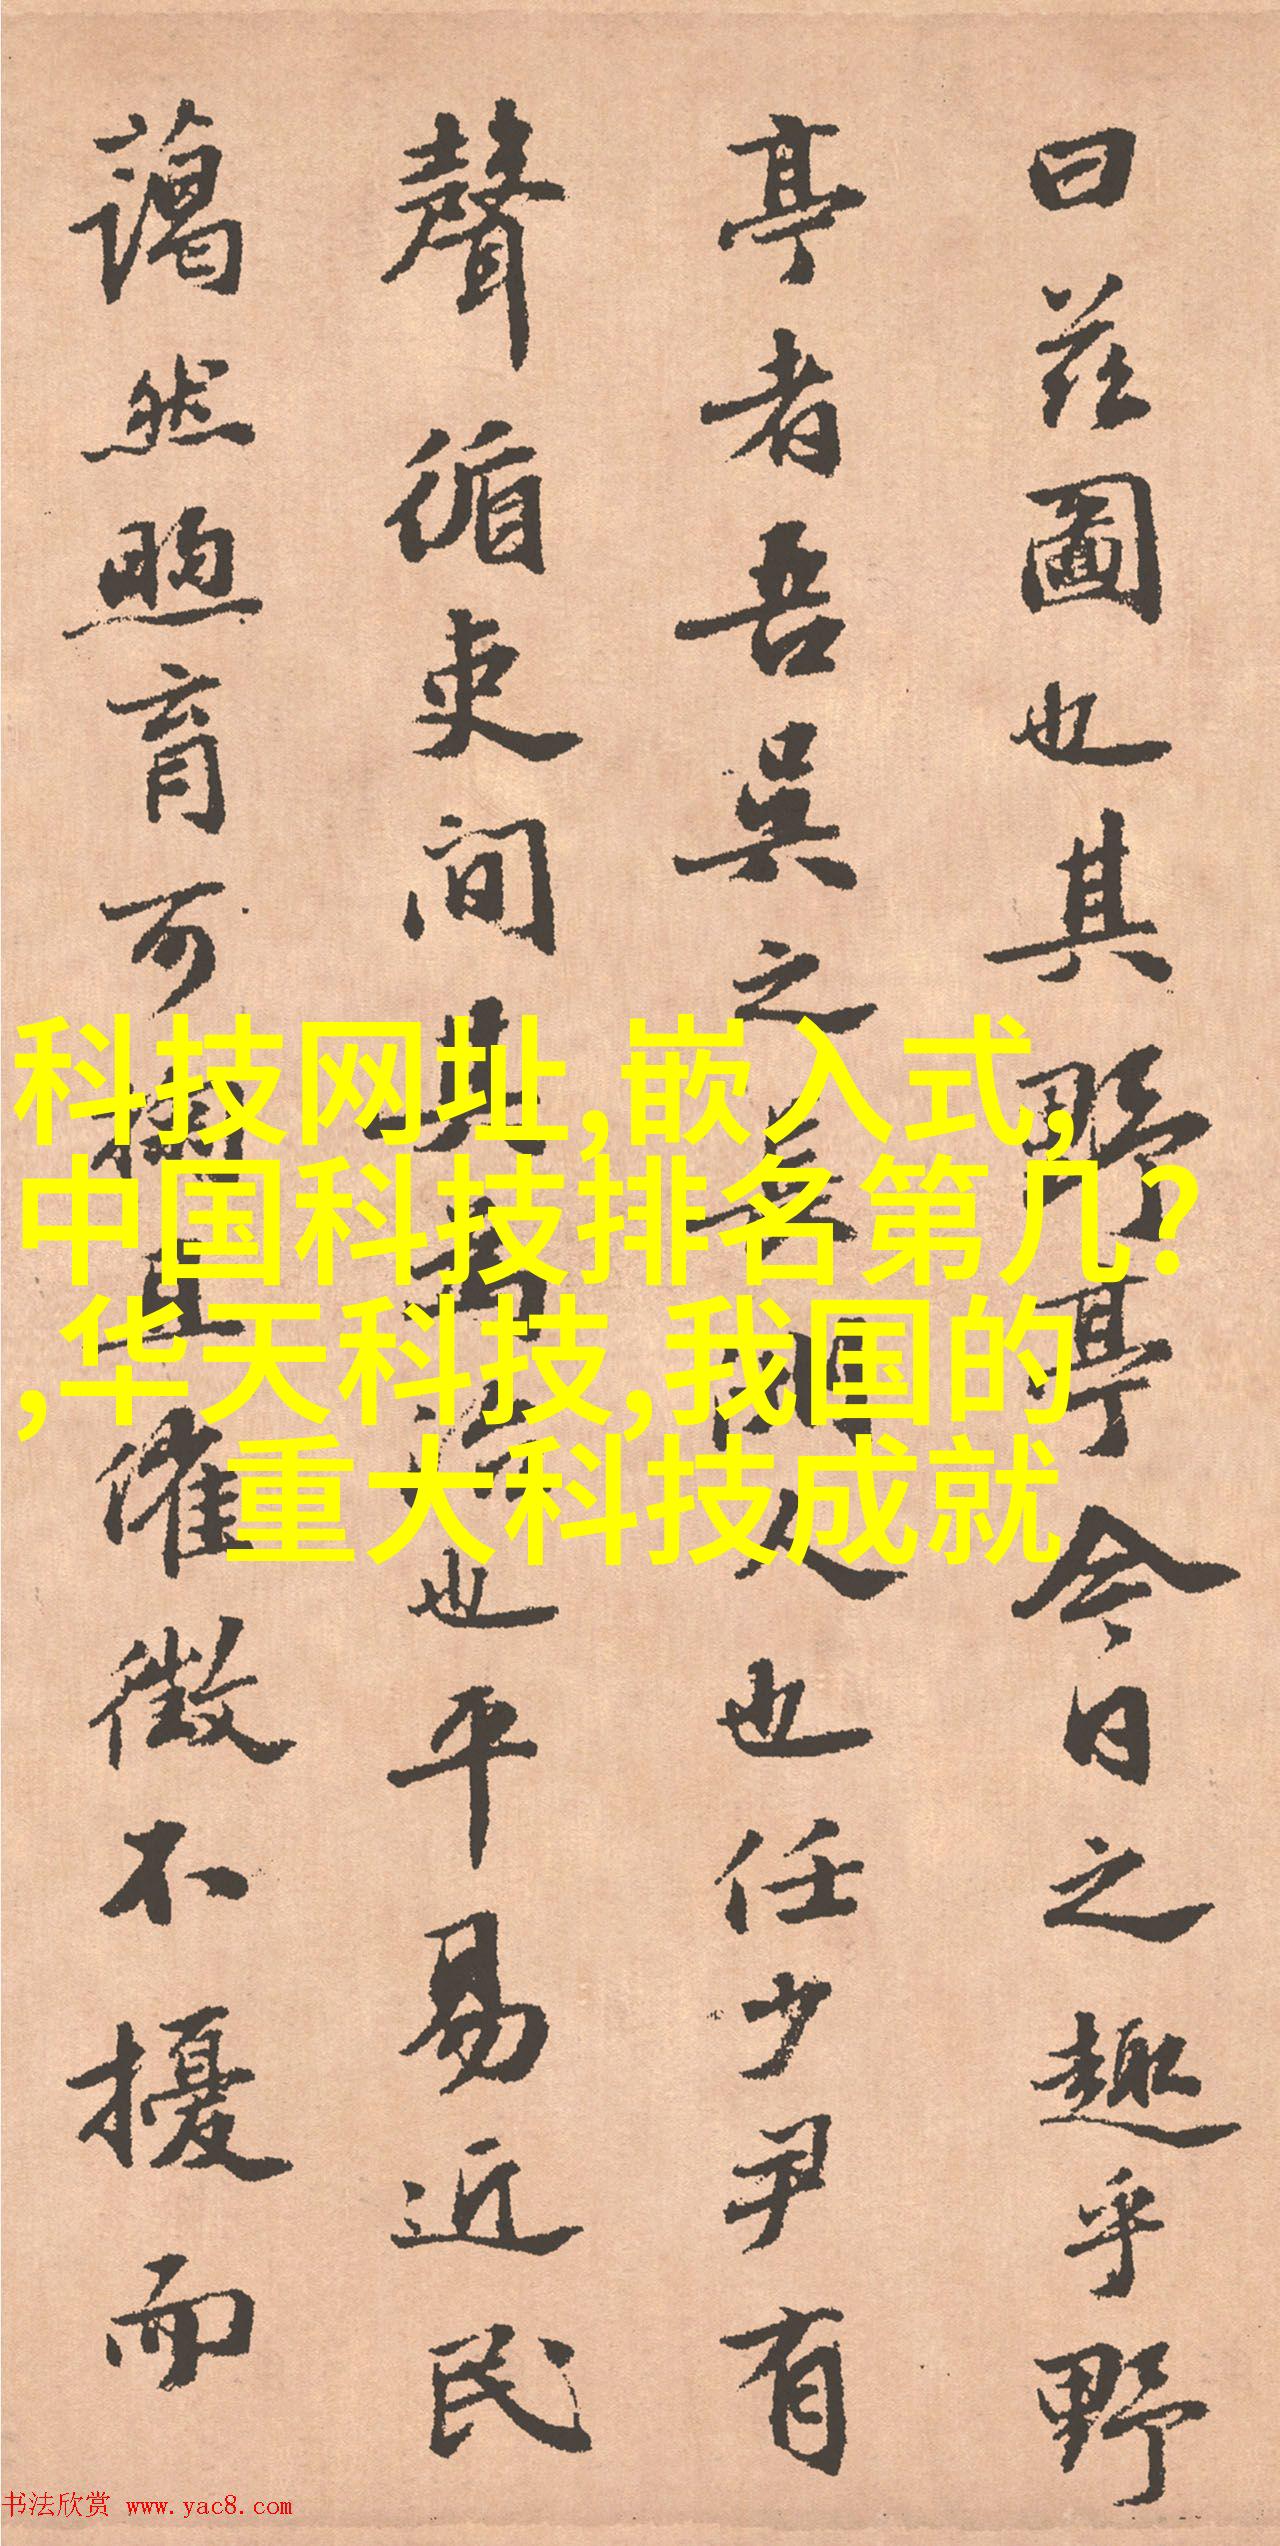 曰茲圖也其野亭今日之趣乎野
亭者吾吳之人也任少尹有
聲循吏間其為治也平易近民
藹然煦育可掬且催徵不擾而
科技网址,嵌入式,
中国科技排名第几?
,华天科技,我国的
重大科技成就
书法欣赏 www.yac8.com